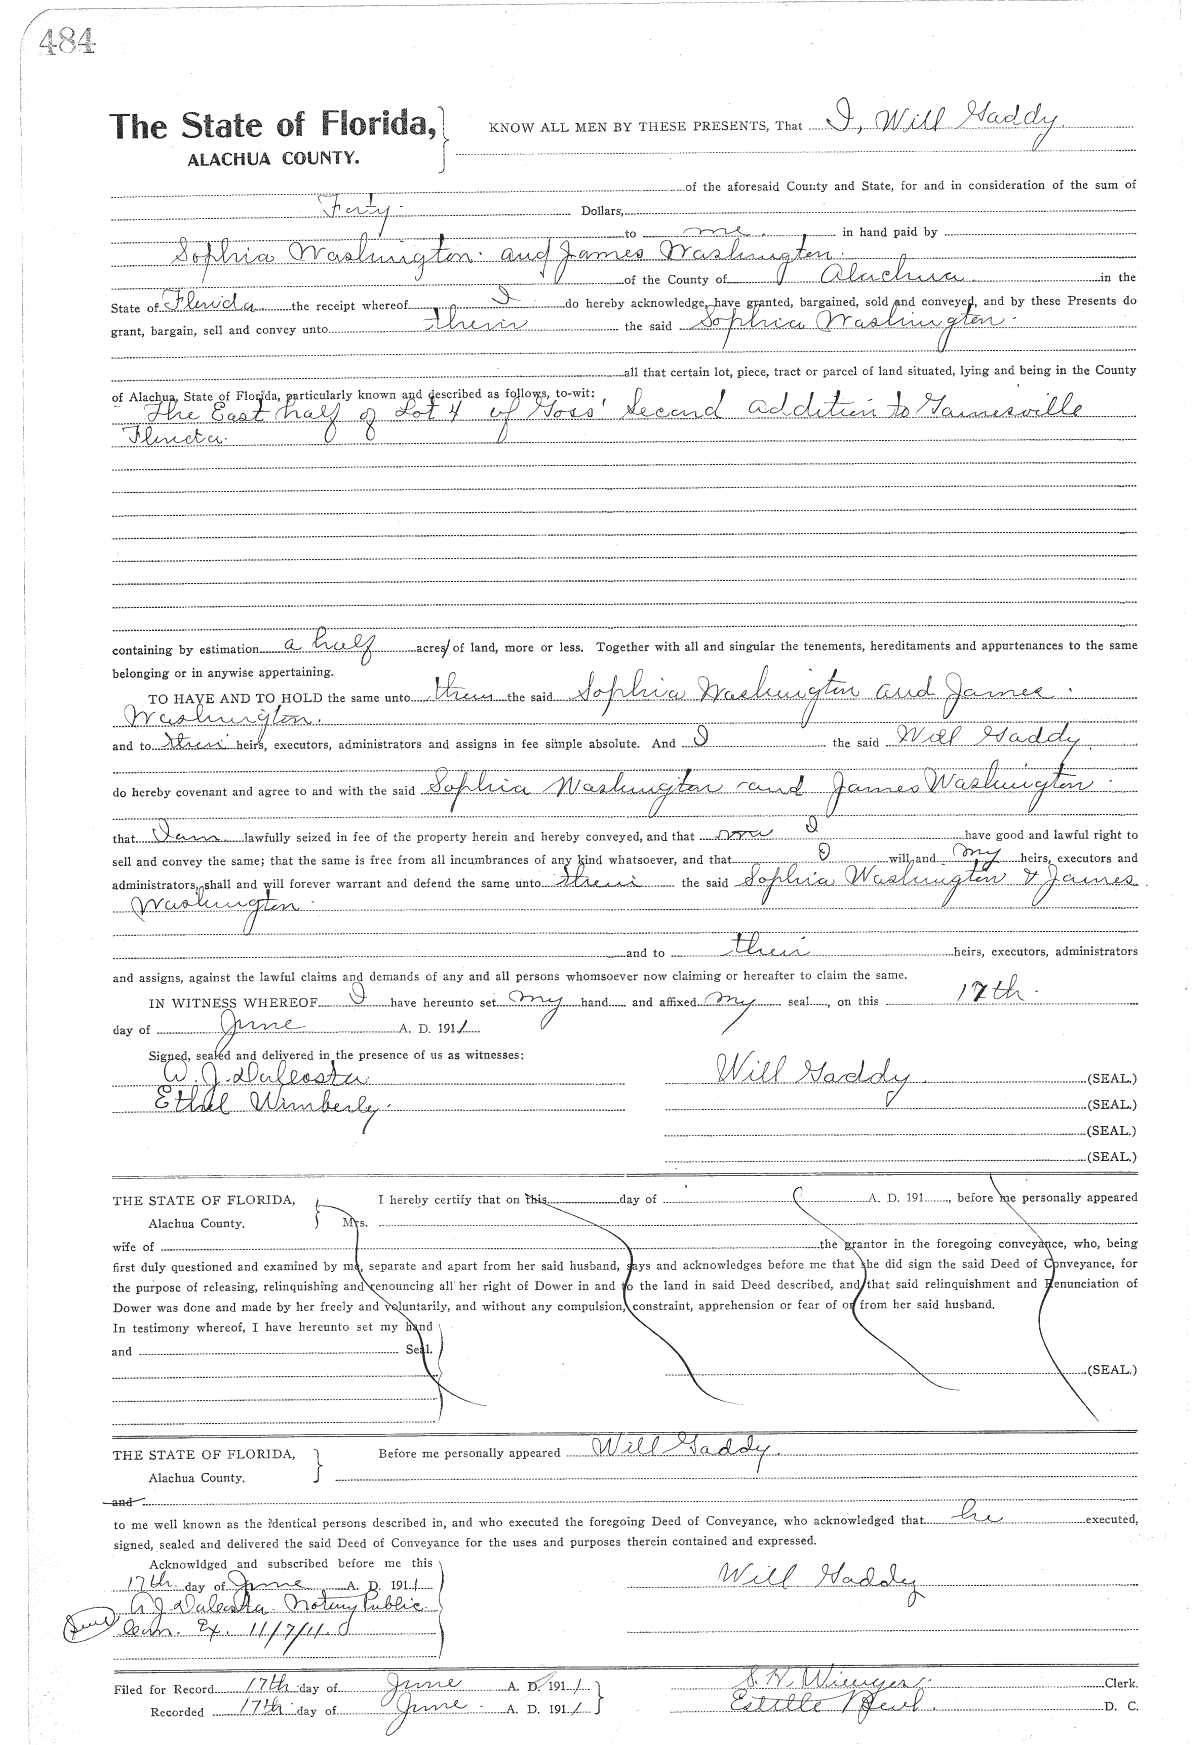 484
The State of Florida, KNOW ALL MEN BY THESE PRESENTS, That I, Will Gaddy.
ALACHUA COUNTY.
of the aforesaid County and State, for and in consideration of the sum of
Forty Dollars,
to me. in hand paid by
Sophia Washington. and James Washington.
of the County of Alachua in the
State of Florida the receipt whereof I do hereby acknowledge, have granted, bargained, sold and conveyed, and by these Presents do
grant, bargain, sell and convey unto the said Sophia Washington.
all that certain lot, piece, tract or parcel of land situated, lying and being in the County
of Alachua, State of Florida, particularly known and described as follows, to-wit:
The East half of Lot 4 of Goss' Second addition to Gainesville
Florida.
containing by estimation a half acre/ of land, more or less. Together with all and singular the tenements, hereditaments and appurtenances to the same
belonging or in anywise appertaining.
TO HAVE AND TO HOLD the same unto them the said Sophia Washington and James
Washington.
and to their heirs, executors, administrators and assigns in fee simple absolute. And I the said Will Gaddy
do hereby covenant and agree to and with the said Sophia Washington and James Washington.
that I am lawfully seized in fee of the property herein and hereby conveyed, and that I have good and lawful right to
sell and convey the same; that the same is free from all incumbrances of any kind whatsoever, and that I will and my heirs, executors and
administrators, shall and will forever warrant and defend the same unto the said Sophia Washington & James
Washington.
and to their heirs, executors, administrators
and assigns, against the lawful claims and demands of any and all persons whomsoever now claiming or hereafter to claim the same.
IN WITNESS WHEREOF I have hereunto set my hand and affixed my seal, on this 17th.
day of June A. D. 1911
Signed, sealed and delivered in the presence of us as witnesses:
W. J. DaCosta Will Gaddy. (SEAL.)
Ethel Wimberly. (SEAL.)
(SEAL.)
(SEAL.)
THE STATE OF FLORIDA, I hereby certify that on this day of A. D. 191 , before me personally appeared
Alachua County. Mrs.
wife of the grantor in the foregoing conveyance, who, being
first duly questioned and examined by me, separate and apart from her said husband, says and acknowledges before me that she did sign the said Deed of Conveyance, for
the purpose of releasing, relinquishing and renouncing all her right of Dower in and to the land in said Deed described, and that said relinquishment and Renunciation of
Dower was done and made by her freely and voluntarily, and without any compulsion, constraint, apprehension or fear of or from her said husband.
In testimony whereof, I have hereunto set my hand
and Seal.
(SEAL.)
THE STATE OF FLORIDA, Before me personally appeared Will Gaddy.
Alachua County.
and
to me well known as the identical persons described in, and who executed the foregoing Deed of Conveyance, who acknowledged that he executed,
signed, sealed and delivered the said Deed of Conveyance for the uses and purposes therein contained and expressed.
Acknowldged and subscribed before me this
17th day of June A. D. 1911 Will Gaddy
W J DaCosta. Notary Public.
Seal Com. Ex. 11/7/11.
Filed for Record 17th day of June A. D. 1911 S. H. Wienges. Clerk.
Recorded 17th day of June. A. D. 1911 Estelle D. C.